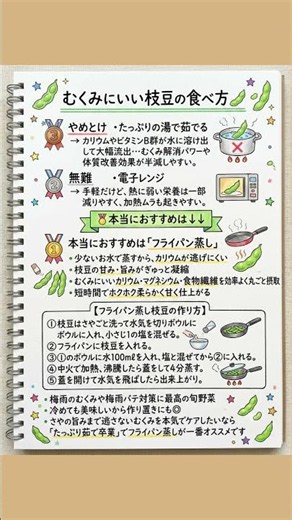 むくみにいい枝豆の食べ方
やめとけ ・たっぷりの湯で茹でる
→ カリウムやビタミンB群が水に溶け出
して大幅流出…むくみ解消パワーや
体質改善効果が半減しやすい。
無難 ・電子レンジ
→ 手軽だけど、熱に弱い栄養は一部
減りやすく、加熱ムラも起きやすい。
本当におすすめは↓↓
本当におすすめは「フライパン蒸し」
・少ないお水で蒸すから、カリウムが逃げにくい
・枝豆の甘み・旨みがぎゅっと凝縮
・むくみにいいカリウム・マグネシウム・食物繊維を効率よく丸ごと摂取
・短時間でホクホク柔らかく甘く仕上がる
【フライパン蒸し枝豆の作り方】
①枝豆はさやごと洗って水気を切りボウルに
ボウルに入れ、小さじ1の塩を混ぜる。
②フライパンに枝豆を入れる。
③①のボウルに水100mlを入れ、塩と混ぜてから②に入れる。
④中火で加熱、沸騰したら蓋をして4分蒸す。
⑤蓋を開けて水気を飛ばしたら出来上がり。
・梅雨のむくみや梅雨バテ対策に最高の旬野菜
・冷めても美味しいから作り置きにも◎
・さやの旨みまで逃さないむくみを本気でケアしたいなら
「たっぷり茹で卒業」でフライパン蒸しが一番オススメです